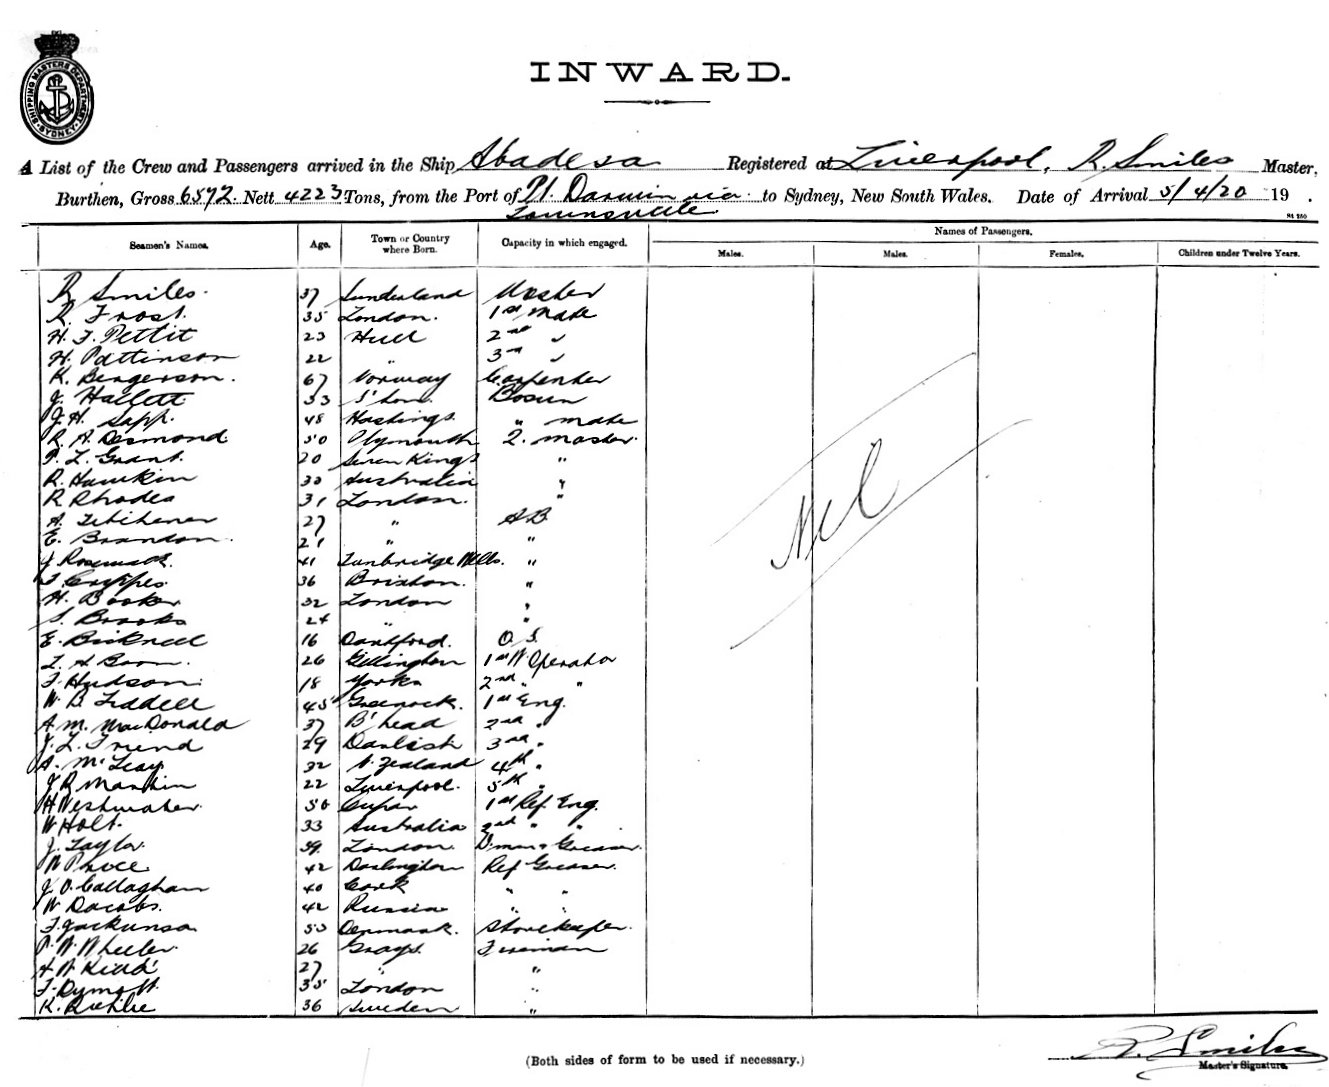 SHIPPING MASTERS DEPARTMENT
SYDNEY
INWARD.
A List of the Crew and Passengers arrived in the Ship Abadesa Registered at Liverpool, R. Smiles Master,
Burthen, Gross 6572 Nett 4223 Tons, from the Port of Pt. Darwin via to Sydney, New South Wales. Date of Arrival 5/4/20 19 .
Townsville
Seamen's Names. Age. Town or Country where Born. Capacity in which engaged. Names of Passengers.
Males. Males. Females. Children under Twelve Years.
R. Smiles. 37 Sunderland Master
R. Frost. 35 London. 1st Mate
H. F. Pettit 23 Hull 2nd "
H. Pattinson 22 " 3rd "
K. Bergerson. 67 Norway Carpenter
J. Hallett 53 S'ton. Bosun
J. H. Sapp. 48 Hastings. " mate
R. A. Desmond 50 Plymouth Q. master.
P. L. Grant. 20 Seven Kings "
R. Hawkin 30 Australia "
R Rhodes 31 London. "
A. 27 " A.B.
E. Brandon. 21 " "
J. 41 Tunbridge Wells. "
F. Cripps 36 Brixton. "
H. Booker 32 London "
S. Brooks 24 " "
E. Bicknell 16 Dartford. O.S.
L. A. Boom. 26 Gillingham 1st W. Operator
F. Hudson. 18 Yorks 2nd " "
W. B. Liddell 45 Greenock. 1st Eng.
A. M. MacDonald 37 B'head 2nd "
J. L. Friend 29 Dawlish 3rd "
A. McLeay 32 N. Zealand 4th "
J R Mankin 22 Liverpool. 5th "
H Westwater. 50 Cupar 1st Ref. Eng.
W Holt. 33 Australia 2nd " "
J. Taylor. 39 London. D'man & Greaser.
W Price 42 Darlington Ref Greaser.
J. O'Callaghan 40 Cork " "
W Dacobs. 42 Russia " "
F. 53 Denmark. Storekeeper.
P. W. Wheeler. 26 Grays. Fireman
A W Kidd 27 " "
F. Dymott. 35 London "
K. 36 Sweden "
Nil
R. Smiles
Master's Signature.
(Both sides of form to be used if necessary.)